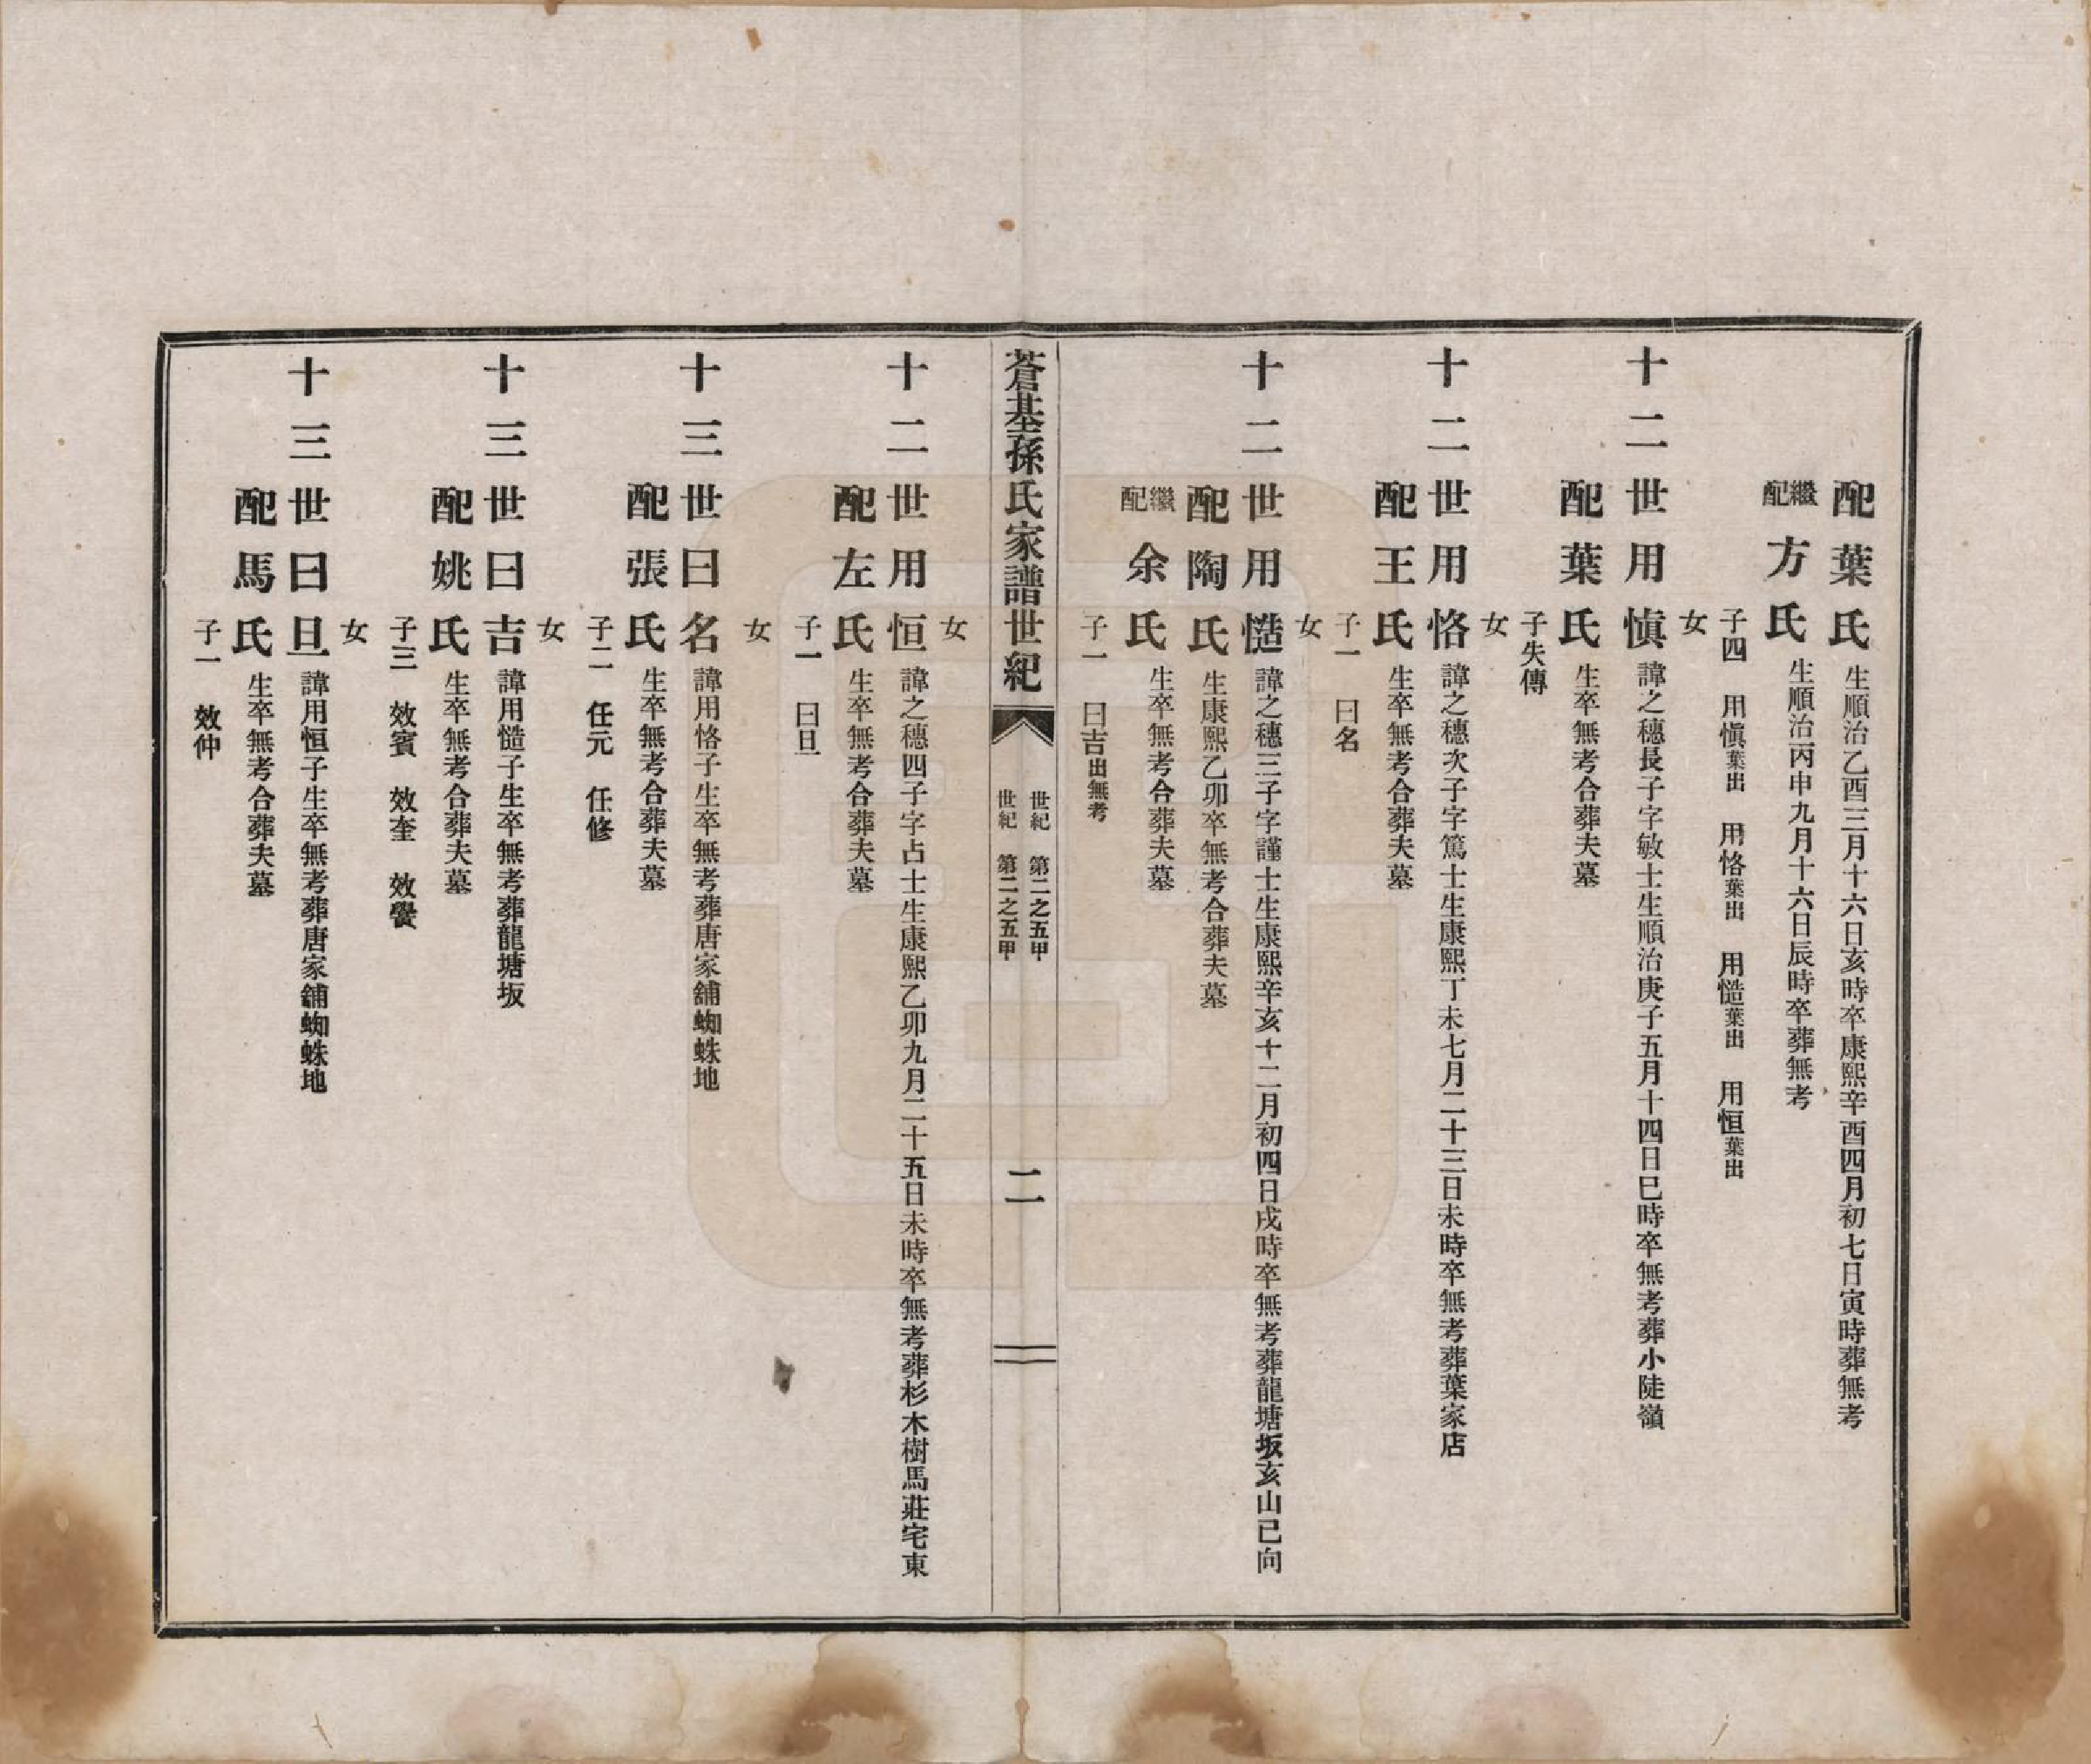 配葉氏生順治乙酉三月十六日亥時卒康熙辛酉四月初七日寅時葬無考
繼配方氏生順治丙申九月十六日辰時卒葬無考
子四 用愼葉出 用恪葉出 用慥葉出 用恒葉出
女
十二世用愼諱之穗長子字敏士生順治庚子五月十四日巳時卒無考葬小陡嶺
配葉氏生卒無考合葬夫墓
子失傳
女
十二世用恪諱之穗次子字篤士生康熙丁未七月二十三日未時卒無考葬葉家店
配王氏生卒無考合葬夫墓
子一 曰名
女
十二世用慥諱之穗三子字謹士生康熙辛亥十二月初四日戌時卒無考葬龍塘坂亥山已向
配陶氏生康熙乙卯卒無考合葬夫墓
繼配余氏生卒無考合葬夫墓
子一 曰吉出無考
蒼基孫氏家譜世紀
世紀 第二之五甲
世紀 第二之五甲
二
女
十二世用恒諱之穗四子字占士生康熙乙卯九月二十五日未時卒無考葬杉木樹馬莊宅東
配左氏生卒無考合葬夫墓
子一 曰旦
女
十三世曰名諱用恪子生卒無考葬唐家舖蜘蛛地
配張氏生卒無考合葬夫墓
子二 任元 任修
女
十三世曰吉諱用慥子生卒無考葬龍塘坂
配姚氏生卒無考合葬夫墓
子三 效賓 效奎 效黌
女
十三世曰旦諱用恒子生卒無考葬唐家舖蜘蛛地
配馬氏生卒無考合葬夫墓
子一 效仲